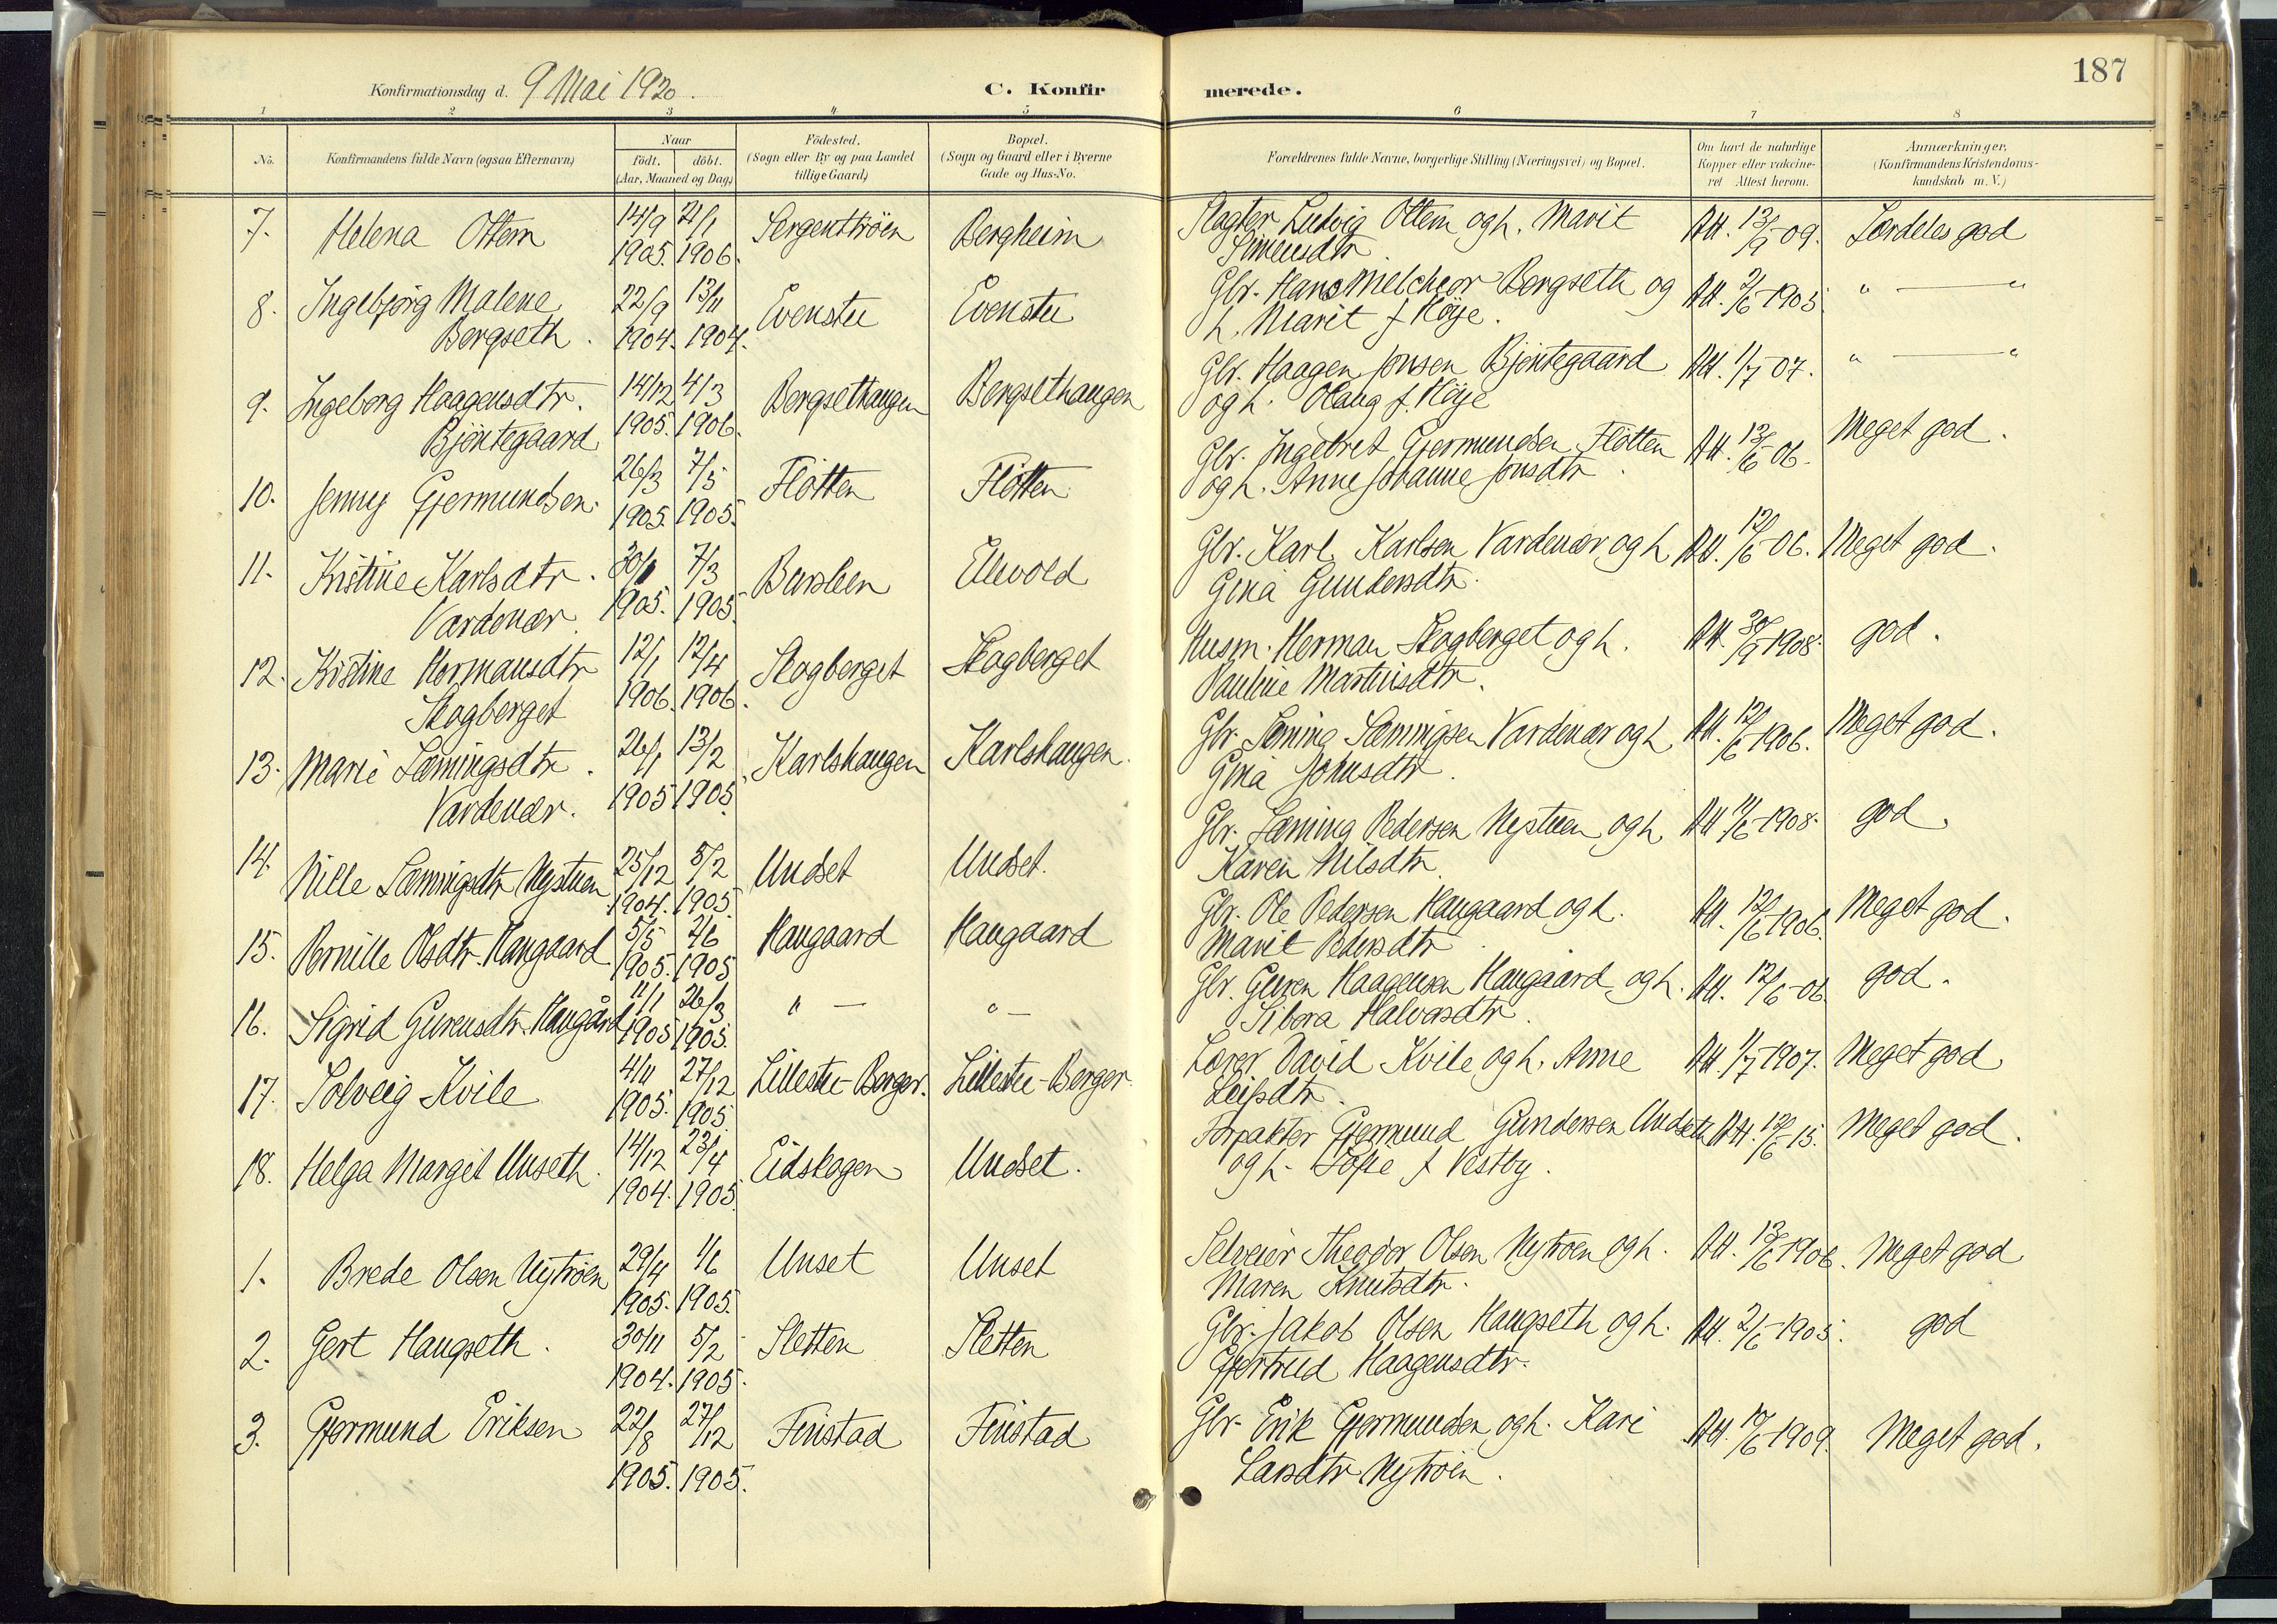 187
Konfirmationsdag d. 9 Mai 1920. C. Konfirmerede.
1 2 3 4 5 6 7 8
No. Konfirmandens fulde Navn (ogsaa Efternavn) Naar födt. döbt. (Aar, Maaned og Dag) Födested. (Sogn eller By og paa Landet tillige Gaard) Bopæl. (Sogn og Gaard eller i Byerne Gade og Hus-No. Forældrenes fulde Navne, borgerlige Stilling (Næringsvei) og Bopæl. Om havt de naturlige Kopper eller vakcineret Attest herom. Anmærkninger. (Konfirmandens Kristendomskundskab m. V.)
7. Helena Ottem 14/9 1905. 21/1 1906. Sergenttrøen Bergheim Slagter Ludvig Ottem og h. Marit Simensdtr Att. 13/9-09. Særdeles god
8. Ingebjørg Malene Bergseth. 22/9 1904. 13/11 1904. Evenstu Evenstu Gbr. Hans Melchior Bergseth og h. Marit f Høye. Att. 2/6-1905. " — "
9. Ingeborg Haagensdtr. Bjøntegaard 14/12 1905. 4/3 1906. Bergsethaugen Bergsethaugen Gbr. Haagen Jonsen Bjøntegaard og h. Olaug f. Høye Att. 1/7-07. " — "
10. Jenny Gjermundsen. 26/3 1905. 7/5 1905. Fløtten Fløtten Gbr. Ingebret Gjermundsen Fløtten og h. Anne Johanne Jonsdtr. Att. 13/6-06. Meget god.
11. Kristine Karlsdtr. Vardenær. 30/1 1905. 7/3 1905. Bursleen Ellevold Gbr. Karl Karlsen Vardenær og h Gina Gundersdtr. Att. 12/6-06. Meget god.
12. Kristine Hermansdtr Skogberget 12/1 1906. 12/4 1906. Skogberget Skogberget Husm. Herman Skogberget og h. Pauline Martinsdtr. Att. 30/9-1908. god.
13. Marie Sæmingsdtr. Vardenær. 26/1 1905 13/2 1905. Karlshaugen Karlshaugen. Gbr. Sæming Sæmingsen Vardenær og h Gina Johnsdtr. Att. 12/6-1906. Meget god.
14. Nille Sæmingsdtr Nystuen 25/12 1904. 5/2 1905. Undset Undset. Gbr. Sæming Pedersen Nystuen og h Karen Nilsdtr. Att 11/6-1908. god.
15. Pernille Olsdtr. Haugaard 5/5 1905. 4/6 1905 Haugaard Haugaard Gbr. Ole Pedersen Haugaard og h. Marit Pedersdtr. Att. 12/6-1906. Meget god.
16. Sigrid Gurensdtr. Haugård 11/1 1905 26/3 1905. " — " — Gbr. Guren Haagensen Haugaard og h. Sibora Halvorsdtr. Att. 12/6-06. god.
17. Solveig Kvile 4/11 1905. 27/12 1905. Lillestu-Berger. Lillestu-Berger. Lærer David Kvile og h. Anne Leifsdtr. Att 1/7-1907. Meget god
18. Helga Margit Unseth. 14/12 1904. 23/4 1905. Eidskogen Undset. Forpakter Gjermund Gundersen Undseth og h. Sofie f Vestby. Att. 12/6-15. Meget god.
1. Brede Olsen Nytrøen 29/4 1905. 1/6 1905. Unset Unset Selveier Theodor Olsen Nytrøen og h. Maren Knutsdtr. Att. 13/6-1906. Meget god
2. Gert Haugseth. 30/11 1904. 5/2 1905. Sletten Sletten Gbr. Jakob Olsen Haugseth og h. Gjertrud Haagensdtr. Att. 2/6-1905. god
3. Gjermund Eriksen 22/8 1905. 27/12 1905. Finstad Finstad Gbr. Erik Gjermundsen og h. Kari Larsdtr Nytrøen. Att. 10/6-1909. Meget god.